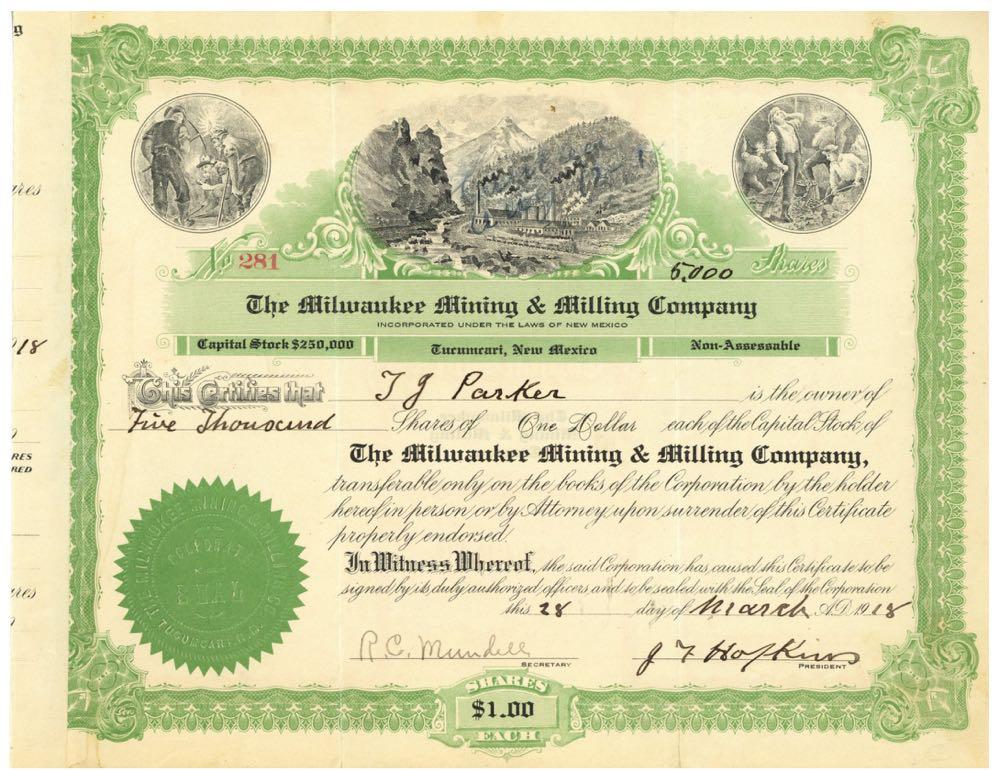 g
No 281
5,000 Shares
ares
The Milwaukee Mining & Milling Company
INCORPORATED UNDER THE LAWS OF NEW MEXICO
Capital Stock $250,000
Tucumcari, New Mexico
Non-Assessable
18
This Certifies that T J Parker is the owner of
Five Thousand Shares of One Dollar each of the Capital Stock of
The Milwaukee Mining & Milling Company,
RES
RED
transferable only on the books of the Corporation by the holder
hereof in person or by Attorney upon surrender of this Certificate
properly endorsed.
In Witness Whereof, the said Corporation has caused this Certificate to be
signed by its duly authorized officers and to be sealed with the Seal of the Corporation
ares
this 28 day of March A.D. 1918
THE MILWAUKEE MINING & MILLING CO.
CORPORATE
SEAL
TUCUMCARI, N.M.
R.C. Mundell
SECRETARY
J F Hopkins
PRESIDENT
SHARES
$1.00
EACH